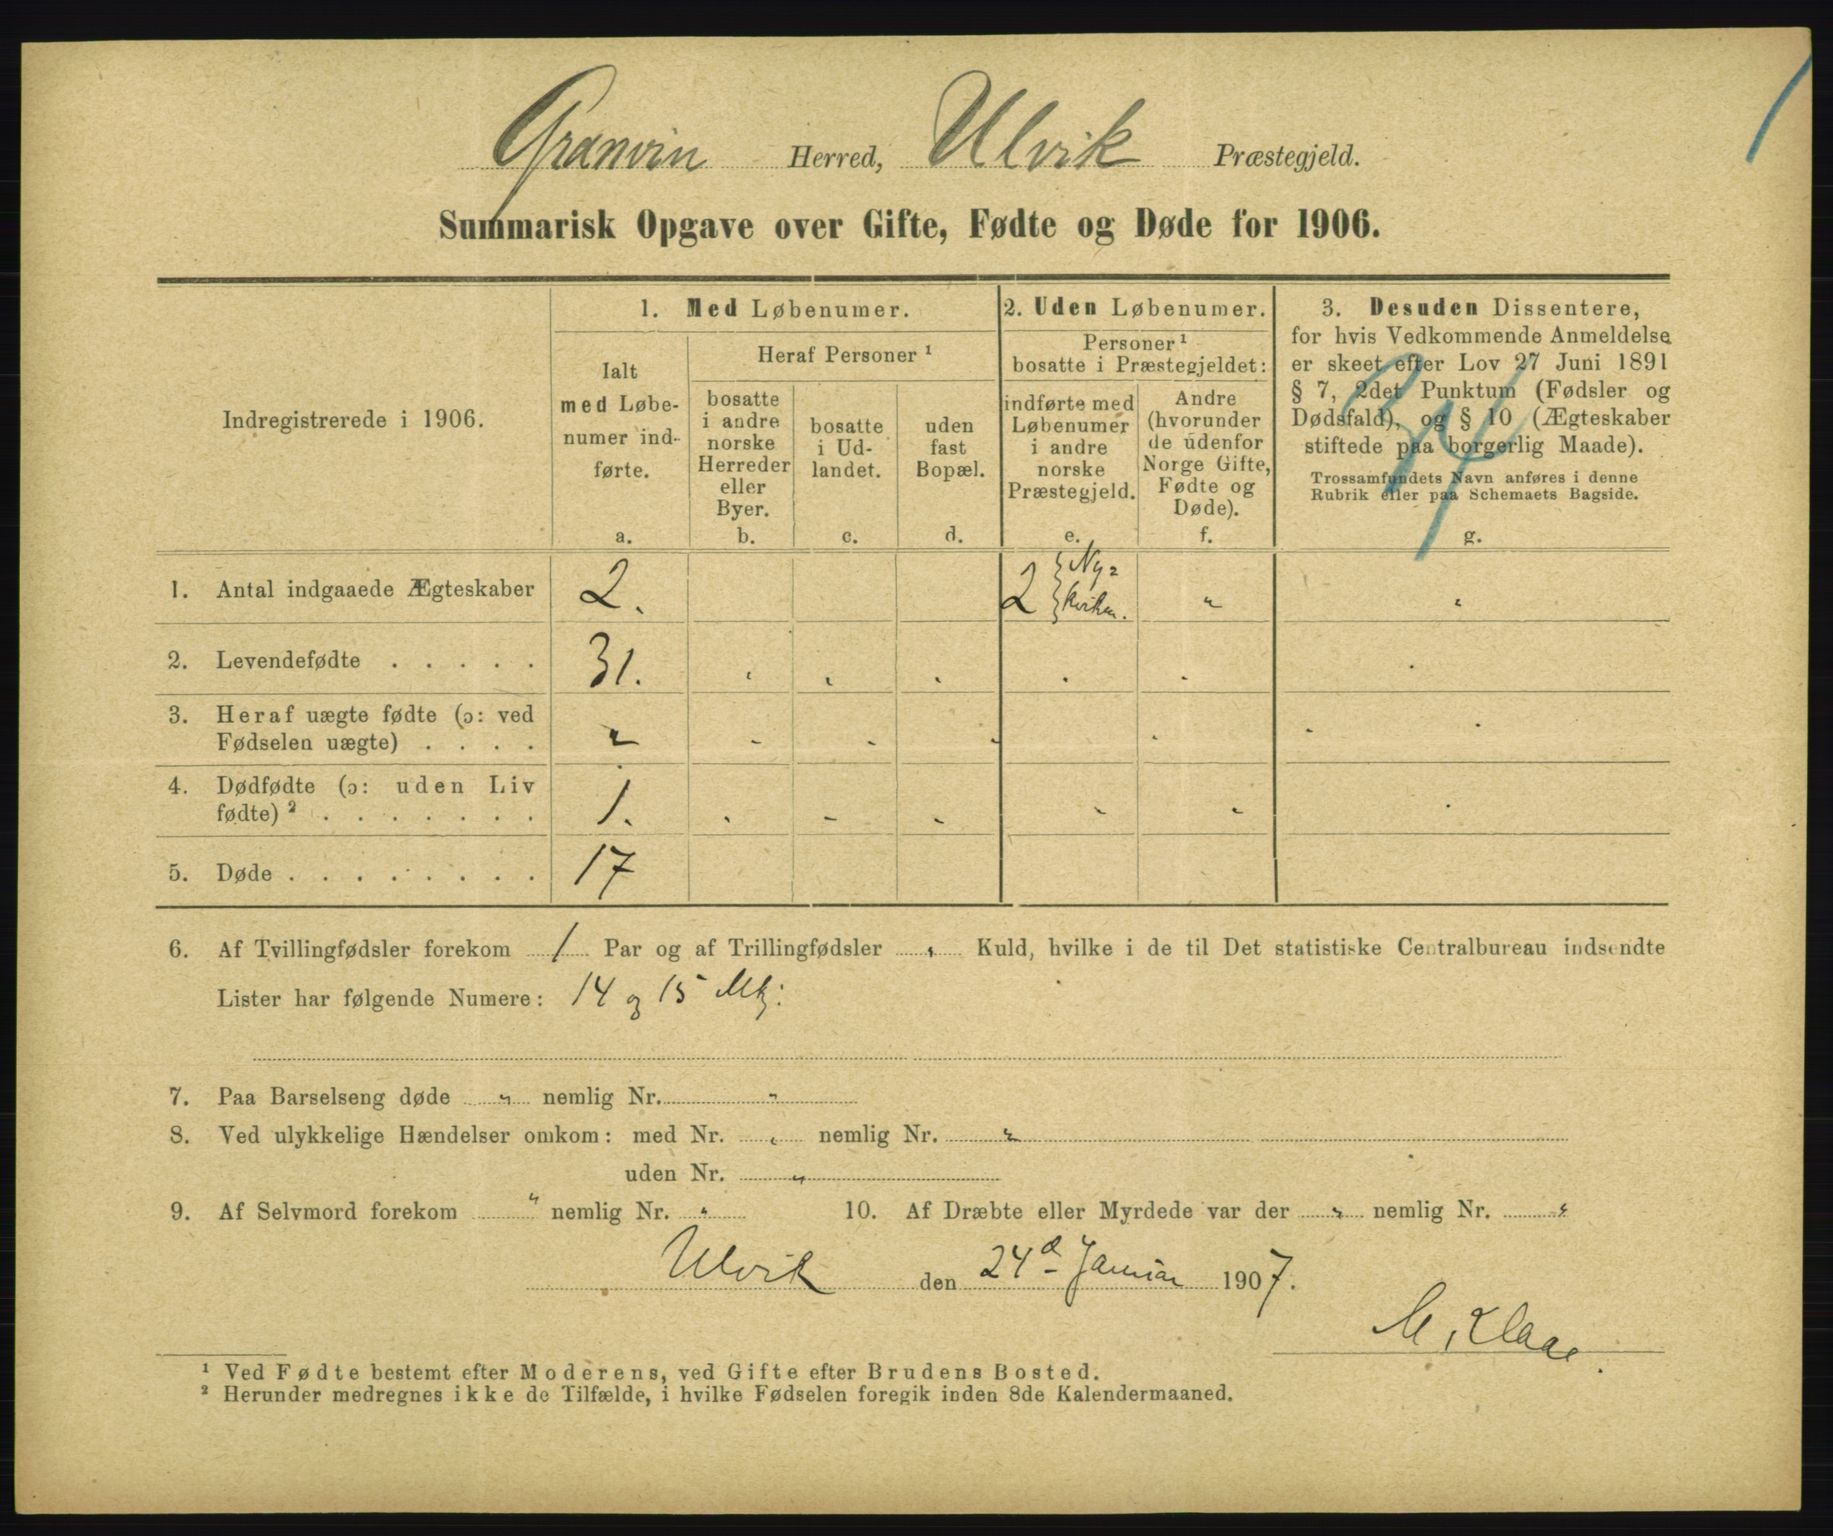 Granvin Herred, Ulvik Præstegjeld.
Summarisk Opgave over Gifte, Fødte og Døde for 1906.
Indregistrerede i 1906.
1. Med Løbenumer.
Ialt
med Løbe-
numer ind-
førte.
a.
Heraf Personer ¹
bosatte
i andre
norske
Herreder
eller
Byer.
b.
bosatte
i Ud-
landet.
c.
uden
fast
Bopæl.
d.
2. Uden Løbenumer.
Personer ¹
bosatte i Præstegjeldet:
indførte med
Løbenumer
i andre
norske
Præstegjeld.
e.
Andre
(hvorunder
de udenfor
Norge Gifte,
Fødte og
Døde).
f.
3. Desuden Dissentere,
for hvis Vedkommende Anmeldelse
er skeet efter Lov 27 Juni 1891
§ 7, 2det Punktum (Fødsler og
Dødsfald), og § 10 (Ægteskaber
stiftede paa borgerlig Maade).
Trossamfundets Navn anføres i denne
Rubrik eller paa Schemaets Bagside.
g.
1. Antal indgaaede Ægteskaber 2. 2 " "
2. Levendefødte . . . . . 31. " " " " " "
3. Heraf uægte fødte (ɔ: ved
Fødselen uægte) . . . . " " " " " " "
4. Dødfødte (ɔ: uden Liv
fødte) ² . . . . . . . 1. " " " " " "
5. Døde . . . . . . . . 17
6. Af Tvillingfødsler forekom 1 Par og af Trillingfødsler " Kuld, hvilke i de til Det statistiske Centralbureau indsendte
Lister har følgende Numere: 14 og 15 Mkj:
7. Paa Barselseng døde " nemlig Nr. "
8. Ved ulykkelige Hændelser omkom: med Nr. " nemlig Nr. "
uden Nr. "
9. Af Selvmord forekom " nemlig Nr. " 10. Af Dræbte eller Myrdede var der " nemlig Nr. "
Ulvik den 24d Januar 1907.
¹ Ved Fødte bestemt efter Moderens, ved Gifte efter Brudens Bosted.
² Herunder medregnes ikke de Tilfælde, i hvilke Fødselen foregik inden 8de Kalendermaaned.